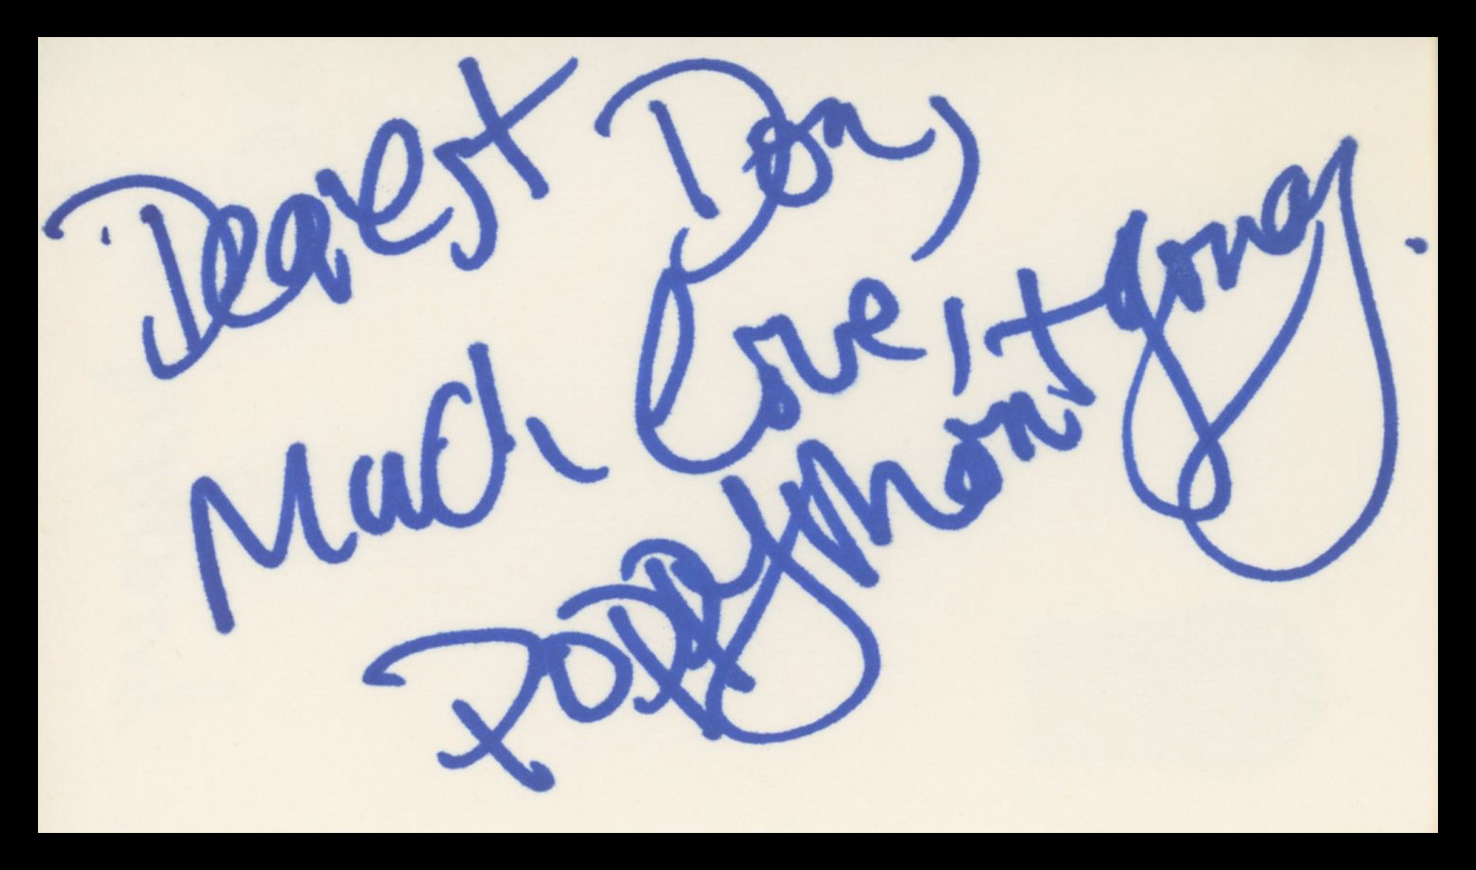 Dearest Don,
Much love,
Poppy Montgomery.